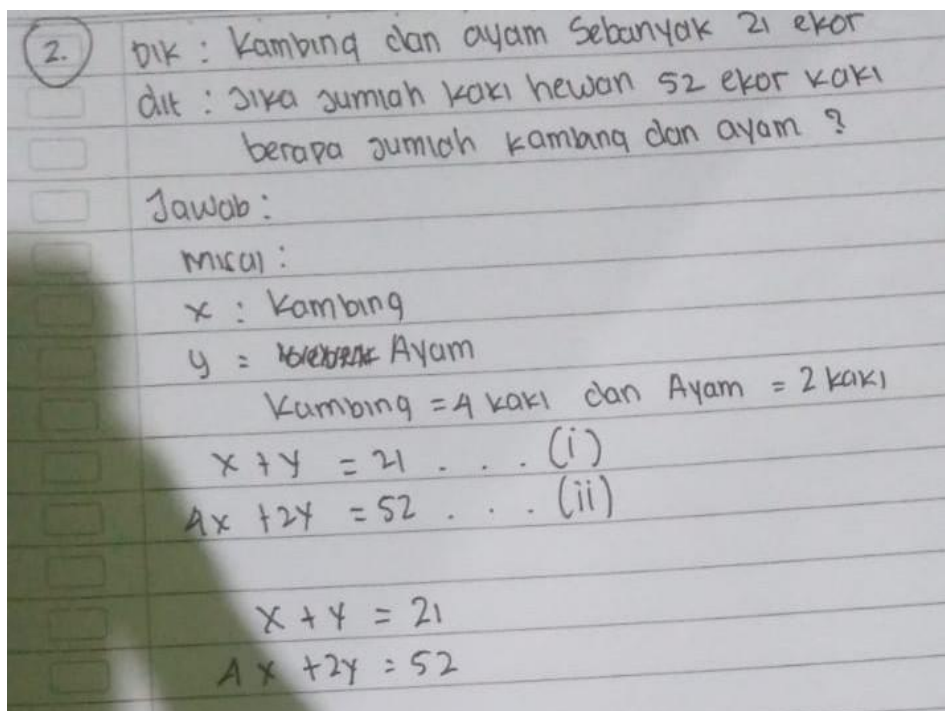 2. Dik : Kambing dan ayam Sebanyak 21 ekor
dit : Jika Jumlah kaki hewan 52 ekor kaki
berapa Jumlah kambing dan ayam ?
Jawab :
misal :
x : Kambing
y = Ayam
Kambing = 4 kaki dan Ayam = 2 kaki
x + y = 21 . . . (i)
4x + 2y = 52 . . . (ii)
x + y = 21
4x + 2y = 52